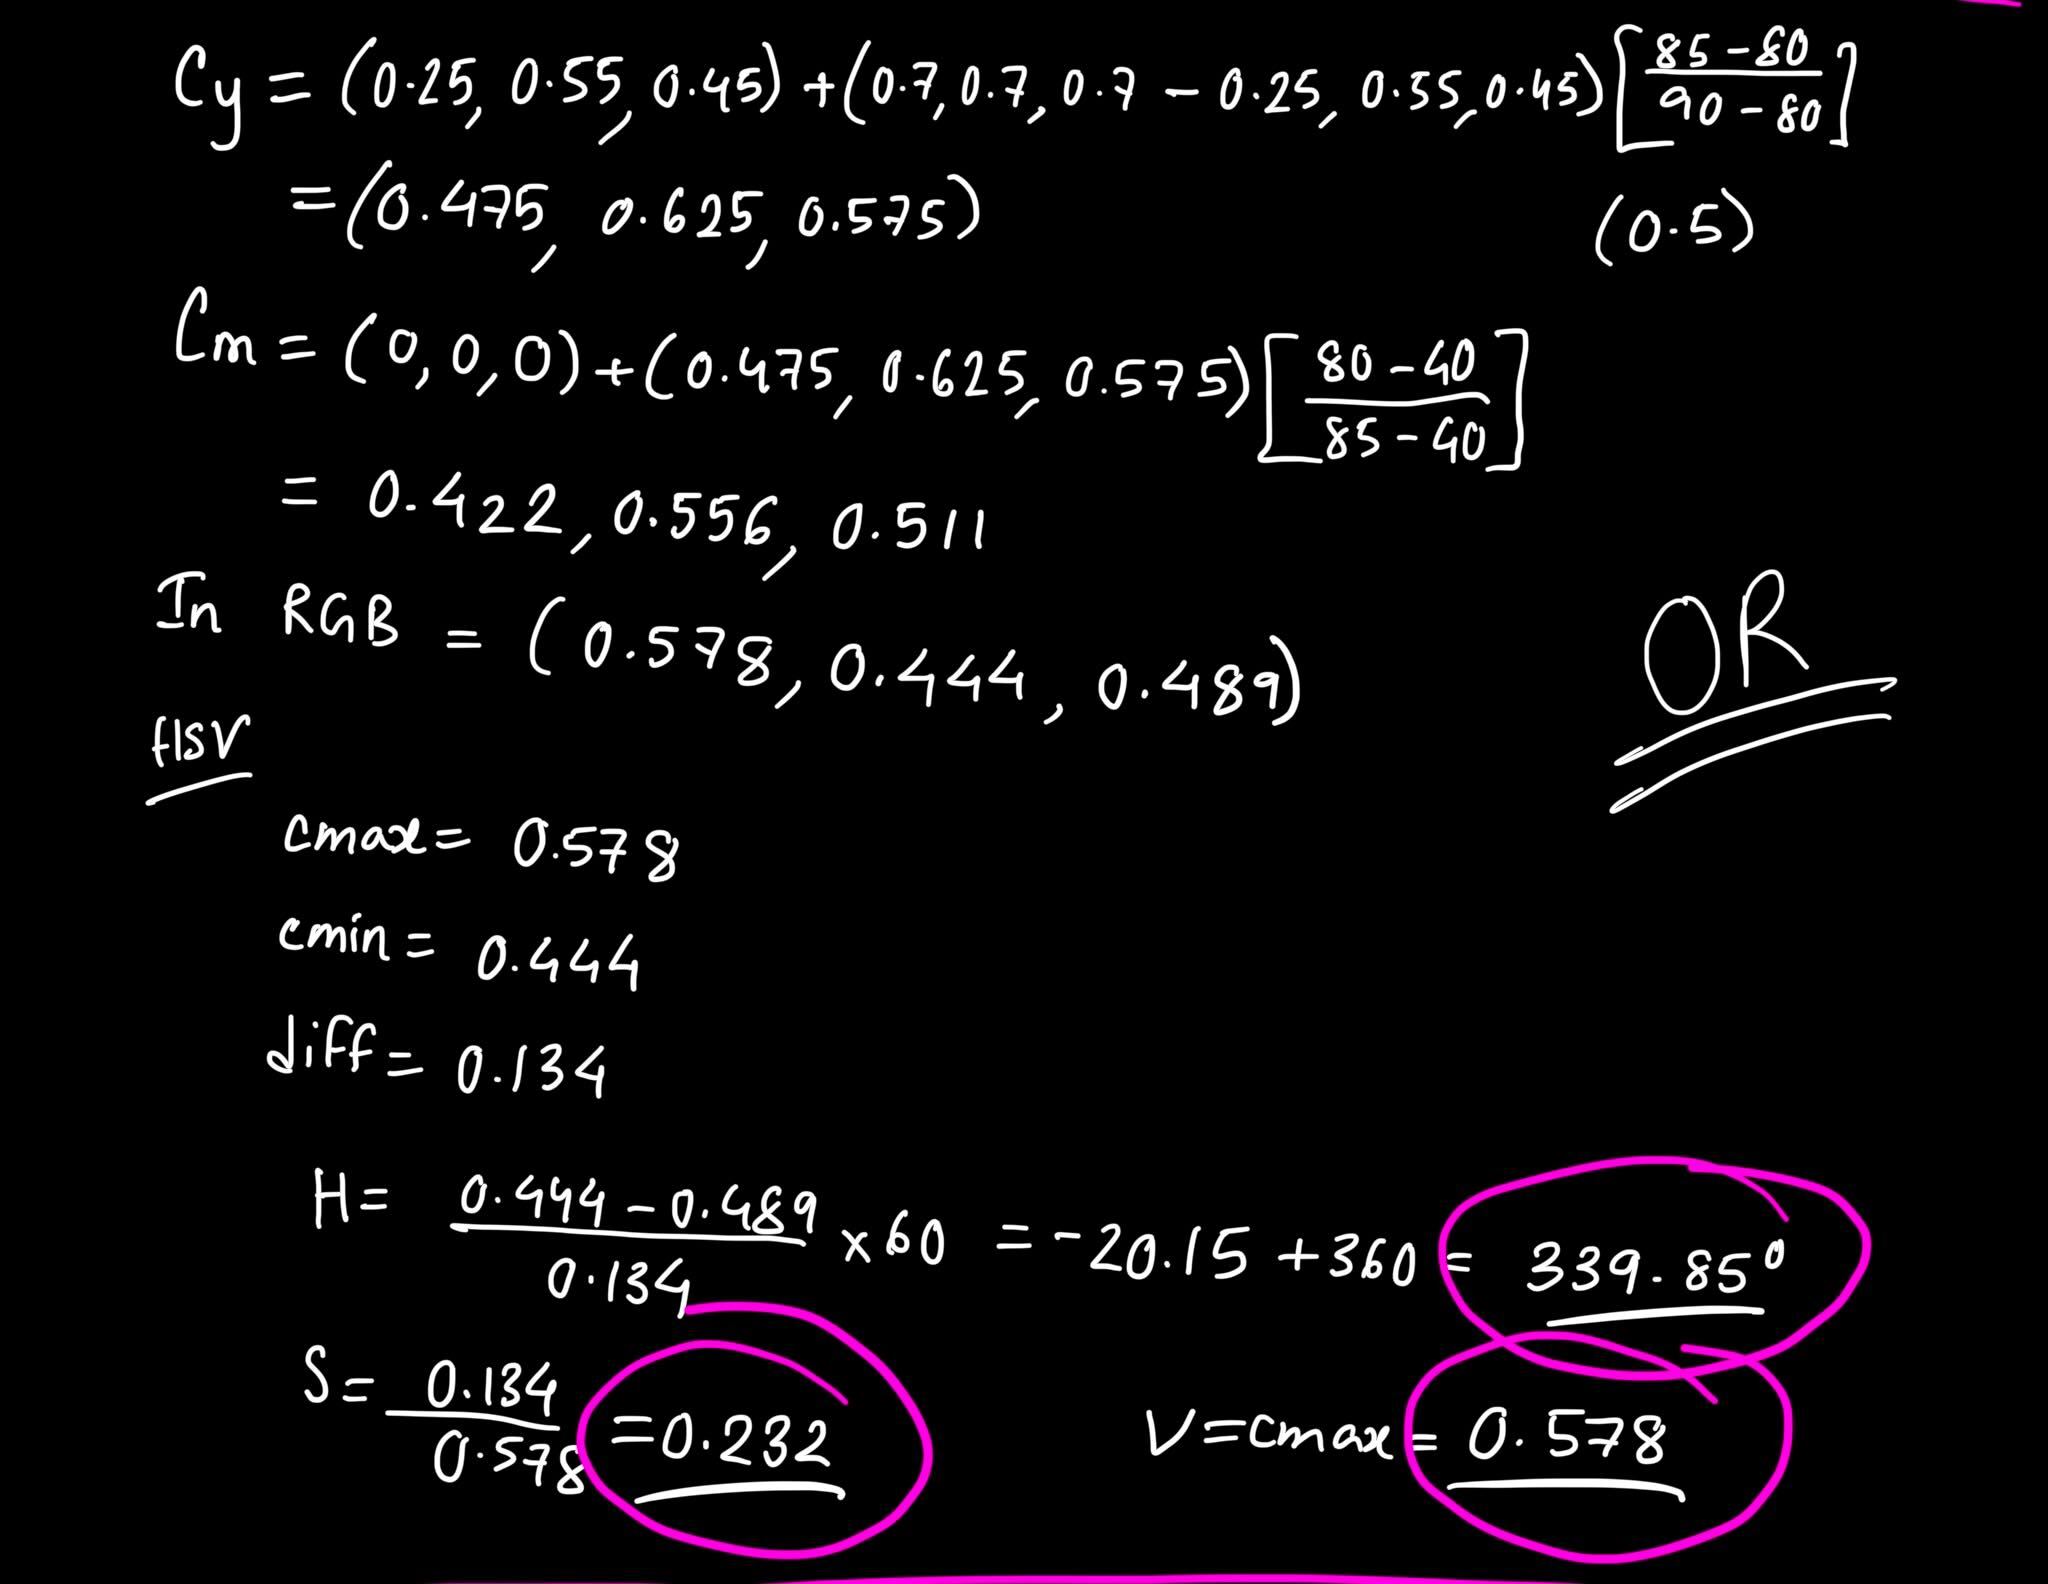 Cy = (0.25, 0.55, 0.45) + (0.7, 0.7, 0.7 - 0.25, 0.55, 0.45) [85-80 / 90-80]
= (0.475, 0.625, 0.575) (0.5)
Cm = (0, 0, 0) + (0.475, 0.625, 0.575) [80-40 / 85-40]
= 0.422, 0.556, 0.511
In RGB = (0.578, 0.444, 0.489)
OR
HSV
cmax = 0.578
cmin = 0.444
diff = 0.134
H = 0.444 - 0.489 / 0.134 x 60 = -20.15 + 360 = 339.85°
S = 0.134 / 0.578 = 0.232 V = cmax = 0.578